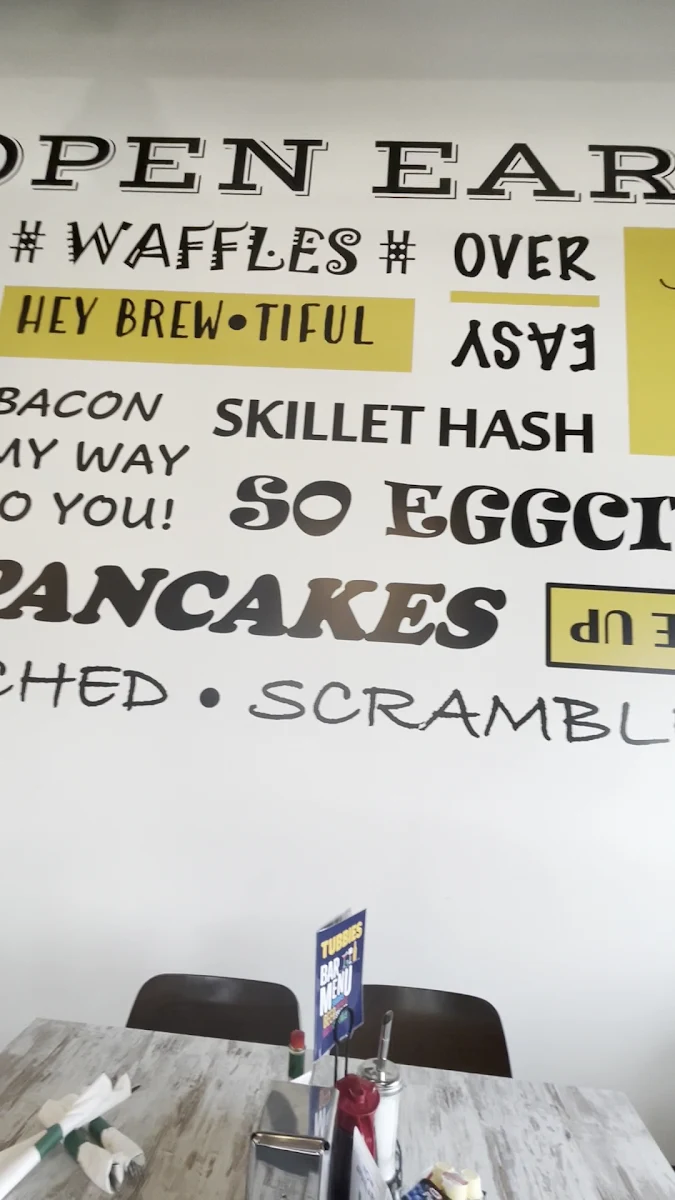 OPEN EAR
# WAFFLES #
OVER
EASY
HEY BREW•TIFUL
BACON
MY WAY
O YOU!
SKILLET HASH
SO EGGCI
PANCAKES
E UP
CHED • SCRAMBLE
TUBBIES
BAR
MENU